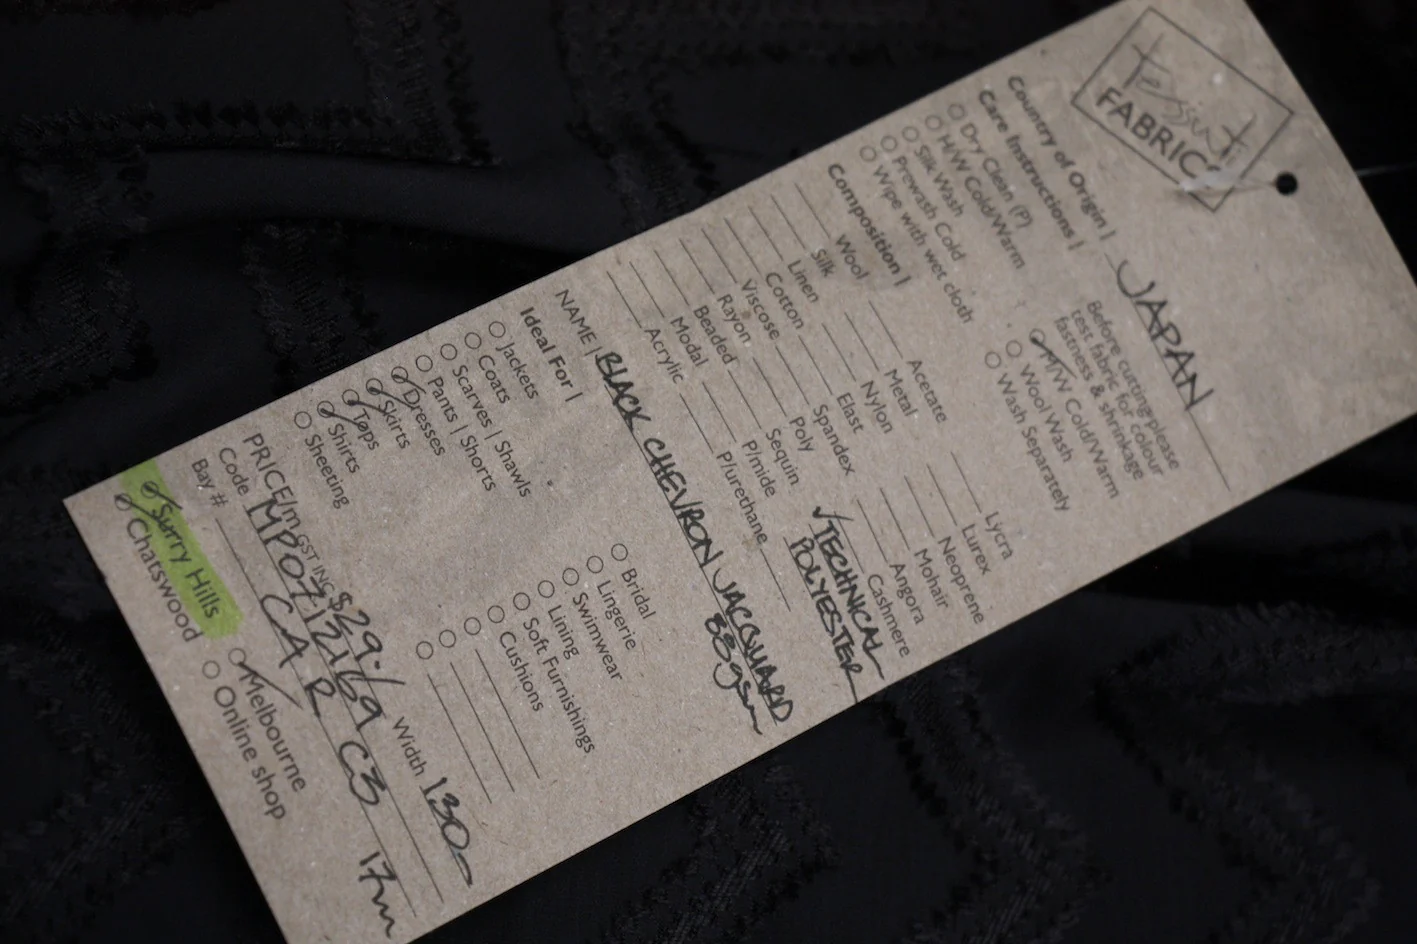 Tessuti
FABRICS
Country of Origin | JAPAN
Care Instructions |
Dry Clean (P)
H/W Cold/Warm
Silk Wash
Prewash Cold
Wipe with wet cloth
Before cutting please
test fabric for colour
fastness & shrinkage
M/W Cold/Warm
Wool Wash
Wash Separately
Composition |
Wool
Silk
Linen
Cotton
Viscose
Rayon
Beaded
Modal
Acrylic
Acetate
Metal
Nylon
Elast
Spandex
Poly
Sequin
P/mide
P/urethane
Lycra
Lurex
Neoprene
Mohair
Angora
Cashmere
TECHNICAL
POLYESTER
NAME | BLACK CHEVRON JACQUARD
Ideal For |
Jackets
Coats
Scarves | Shawls
Pants | Shorts
Dresses
Skirts
Tops
Shirts
Sheeting
Bridal
Lingerie
Swimwear
Lining
Soft Furnishings
Cushions
PRICE/m GST INC $29.-
Width 130
Code MPOT12169
Bay # CAR C3 17m
Surry Hills
Chatswood
Melbourne
Online shop